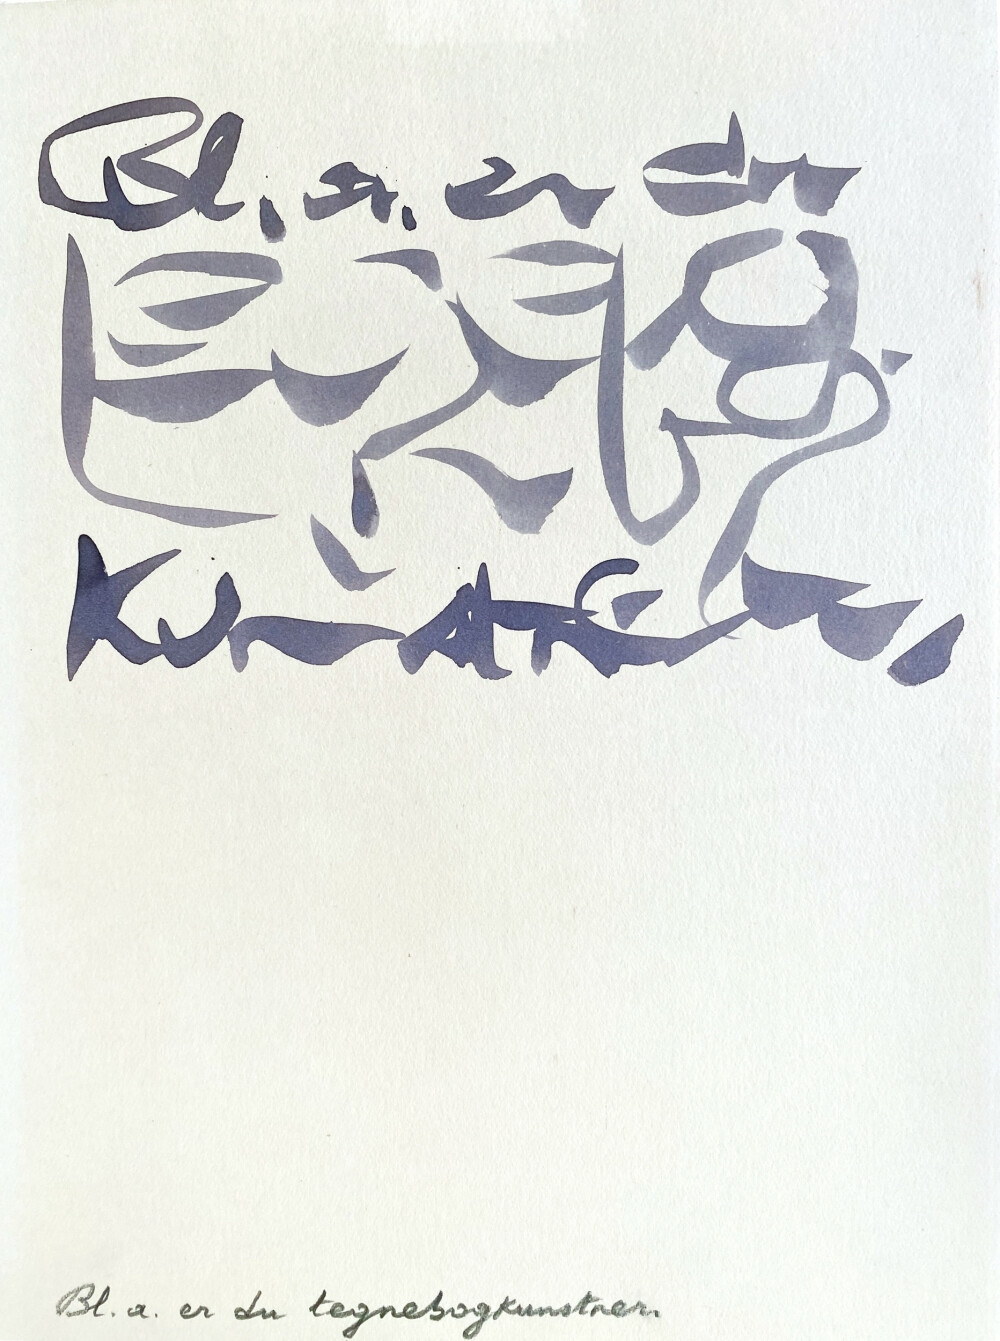 Bl. a. er du
tegnebog
kunstner,
Bl. a. er du tegnebogkunstner.